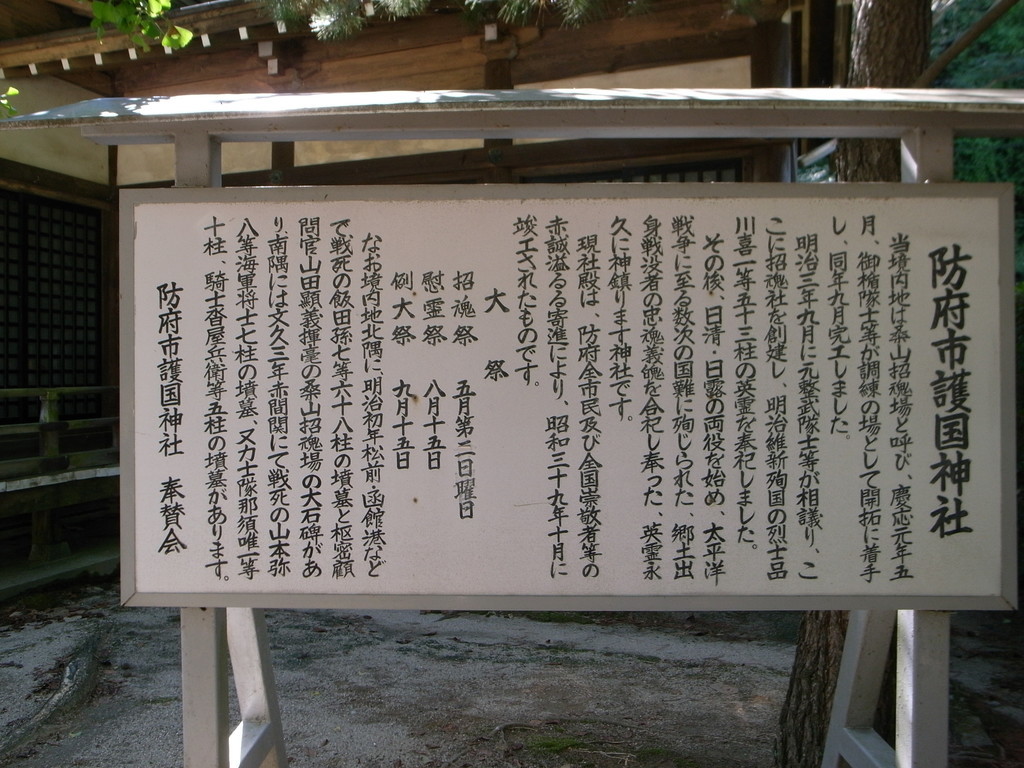 防府市護国神社
当境内地は桑山招魂場と呼び、慶応元年五
月、御楯隊士等が調練の場として開拓に着手
し、同年九月完工しました。
明治三年九月に元整武隊士等が相議り、こ
こに招魂社を創建し、明治維新殉国の烈士品
川喜一等五十三柱の英霊を奏祀しました。
その後、日清・日露の両役を始め、太平洋
戦争に至る数次の国難に殉じられた、郷土出
身戦没者の忠魂義魄を合祀し奉った、英霊永
久に神鎮ります神社です。
現社殿は、防府全市民及び全国崇敬者等の
赤誠溢るる寄進により、昭和三十九年十月に
竣工されたものです。
大祭
招魂祭 五月第二日曜日
慰霊祭 八月十五日
例大祭 九月十五日
なお境内地北隅に、明治初年松前・函館港など
で戦死の飯田孫七等六十八柱の墳墓と枢密顧
問官山田顕義揮毫の桑山招魂場の大石碑があ
り、南隅には文久三年赤間関にて戦死の山本弥
八等海軍将士七柱の墳墓、又力士隊那須唯一等
十柱、騎士沓屋兵衛等五柱の墳墓があります。
防府市護国神社 奉賛会